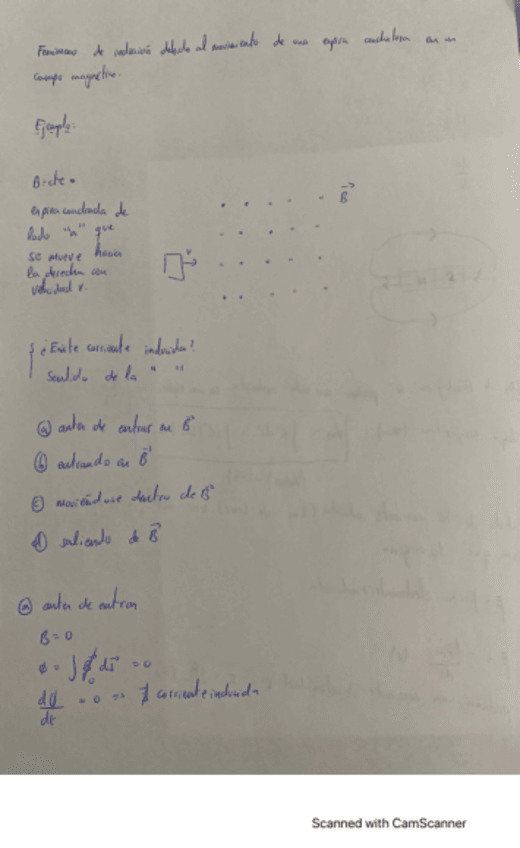 Fenómeno de inducción debido al movimiento de una espira cuadrada en un
campo magnético.
Ejemplo:
B=cte
espira cuadrada de
lado "a" que
se mueve hacia
la derecha con
velocidad v.
v
B
¿Existe corriente inducida?
Sentido de la " "
(a) antes de entrar en B
(b) entrando en B
(c) moviéndose dentro de B
(d) saliendo de B
(a) antes de entrar
B=0
ϕ = ∫ B ds = 0
dϕ/dt = 0 => ∄ corriente inducida
Scanned with CamScanner